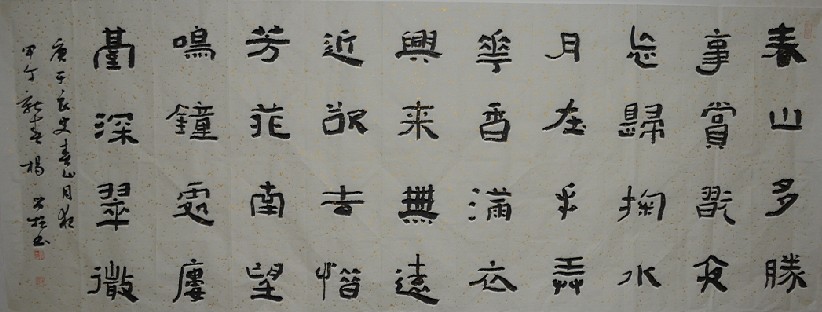 春山多勝
事賞翫夜
忘歸掬水
月在手弄
華香滿衣
興来無遠
近欲去惜
芳菲南望
鳴鐘處廔
臺深翠微
唐于良史春山月夜
甲午新春楊书